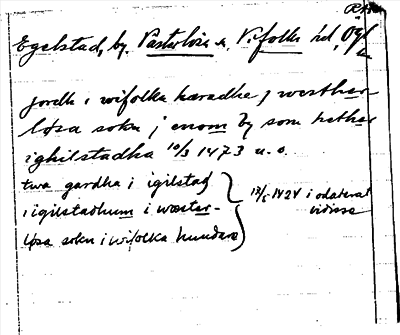 Egelstad, by. Västerlösa sn. Vifolka hd, Ög.
jordh i wifolka häradhe j westher-
lösa sokn j enom by som hether
ighilstadha 10/3 1473 u. o.
twa gardha i igilstad
i igilstadhum i wæster-
lösa sokn i wifolka hundare
12/5 1424 i odaterad
vidisse